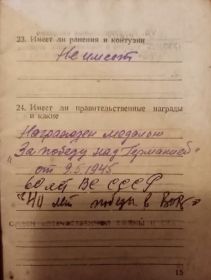 23. Имеет ли ранения и контузии
Не имеет
24. Имеет ли правительственные награды
и какие
Награжден медалью
"За победу над Германией"
от 9.5.1945
60 лет ВС СССР
"40 лет победы в ВОВ"
15